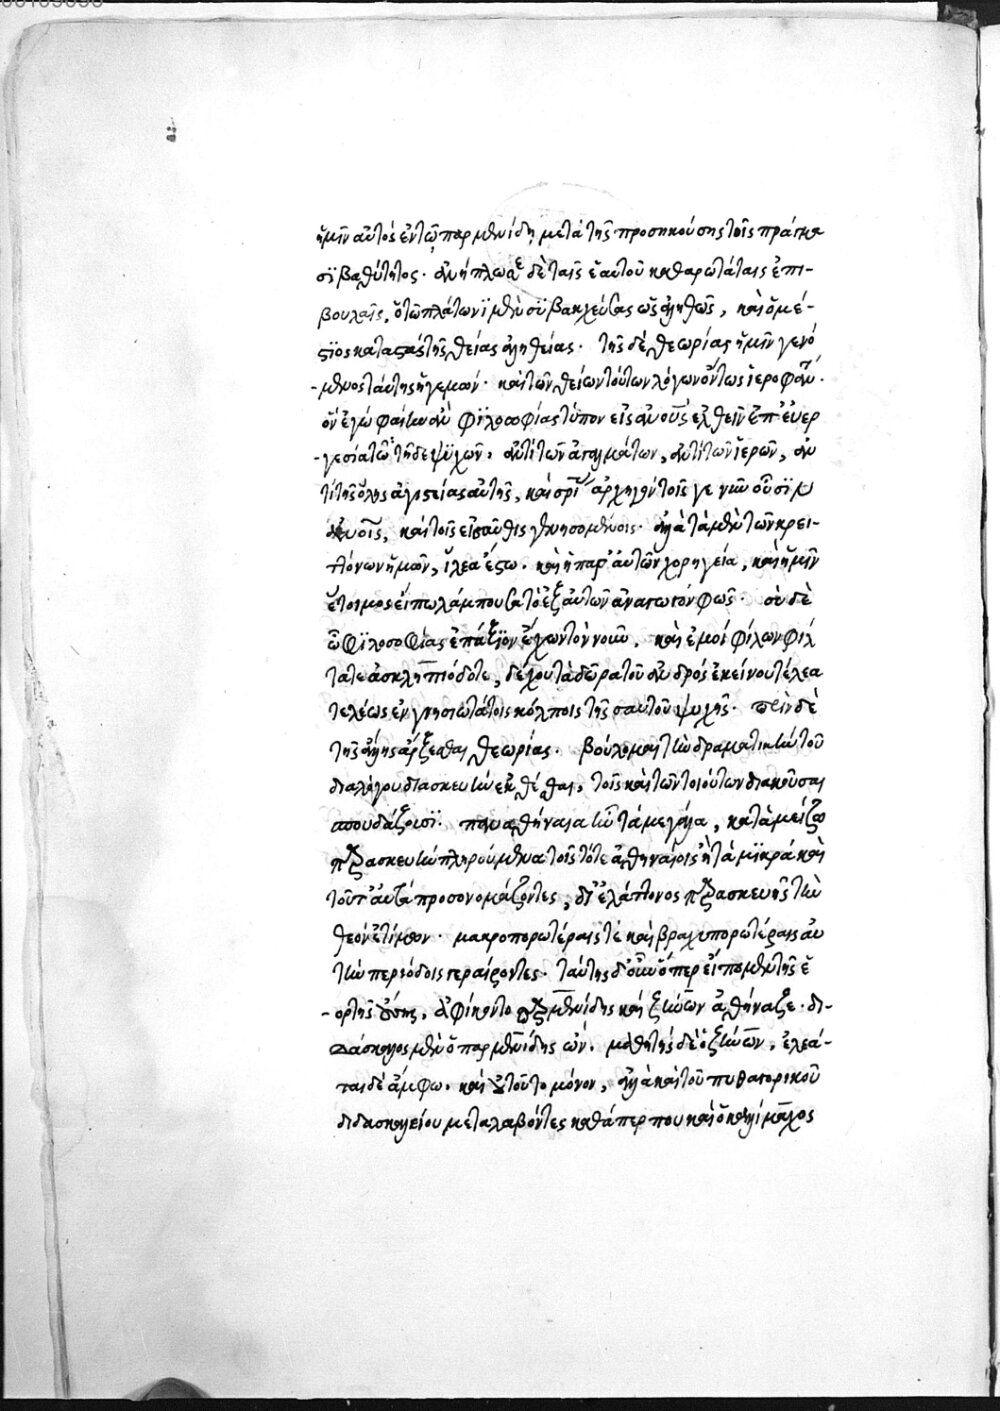 ἡμῖν αὐτὸς ἐν τῷ παρμενίδῃ μετὰ τῆς προσηκούσης τοῖς πράγμα
σϊ βαθύτητος· ἀνήπλωσε δὲ ταῖς ἑαυτοῦ καθαρωτάταις ἐπι-
βουλαῖς, ὁ τῷ πλάτωνϊ μὲν συμβακχεύσας ὡς ἀληθῶς, καὶ ὁμέ-
ϛϊος καταϛὰς τῆς θείας ἀληθείας· τῆς δὲ θεωρίας ἡμῖν γενό
-μενος ταύτης ἡγεμών· καὶ τῶν θείων τούτων λόγων ὄντως ἱεροφάν·
ὃν ἐγὼ φαίην ἂν φϊλοσοφίας τύπον εἰς ἀνους ἐλθεῖν ἐπ' εὐερ
-γεσία τῶν τῇδε ψϋχῶν· ἀντὶ τῶν ἀγαλμάτων, ἀντὶ τῶν ἱερῶν, ἀν
τὶ τῆς ὅλης ἁγιϛείας αὐτῆς, καὶ σρΐας ἀρχηγὸν τοῖς γε νῦν οὖσϊν
ἀνοις, καὶ τοῖς εἰσαῦθις γενησομένοις· ἀλλὰ τὰ μὲν τῶν κρει-
ττόνων ἡμῶν, ἵλεα ἔϛω· καὶ ἡ παρ' αὐτῶν χορηγεία, καὶ ἡμῖν
ἕτοιμος ἐπιπωλάμπουσα τὸ ἐξ αὐτῶν ἀναγωγὸν φῶς· σὺ δὲ
ὦ φϊλοσοφίας ἐπάξϊον ἔχων τὸν νοῦν, καὶ ἐμοὶ φίλων φίλ
τατε ἀσκληπιόδοτε, δέχου τὰ δῶρα τοῦ ἀνδρὸς ἐκείνου τέλεα
τελέως ἐν γνησιωτάτοις κόλποις τῆς σαυτοῦ ψυχῆς· πρὶν δὲ
τῆς ὅλης ἄρξεσθαι θεωρίας· βούλομαι τὴν δραματικὴν τοῦ
διαλόγου διασκευὴν ἐκθέσθαι, τοῖς καὶ τῶν τοιούτων διακοῦσαι
σπουδάζουσϊ· παναθήναια ἦν τὰ μεγάλα, κατὰ μείζω
πρασκευὴν πληρούμενα τοῖς τότε ἀθηναίοις ἢ τὰ μϊκρὰ καὶ
τοῦτ' αὐτὰ προσονομάζοντες, δι' ἐλάττονος πρασκευῆς τὴν
θεὸν ἐτίμων· μακροπορωτέραις τὲ καὶ βραχυπορωτέραις αὐ
τὴν περιόδοις γεραίροντες· ταύτης δ' οὖν ὅπερ εἴπομεν τῆς ἑ
-ορτῆς οὔσης, ἀφίκοντο παρμενίδης καὶ ζήνων ἀθήναζε· δι-
δάσκαλος μὲν ὁ παρμενίδης ὢν· μαθητὴς δὲ ὁ ζήνων, ἐλεά-
ται δὲ ἄμφω· καὶ οὐ τοῦτο μόνον, ἀλλὰ καὶ τοῦ πυθαγορικοῦ
διδασκαλείου μεταλαβόντες καθάπερ που καὶ ὁ καλλίμαχος